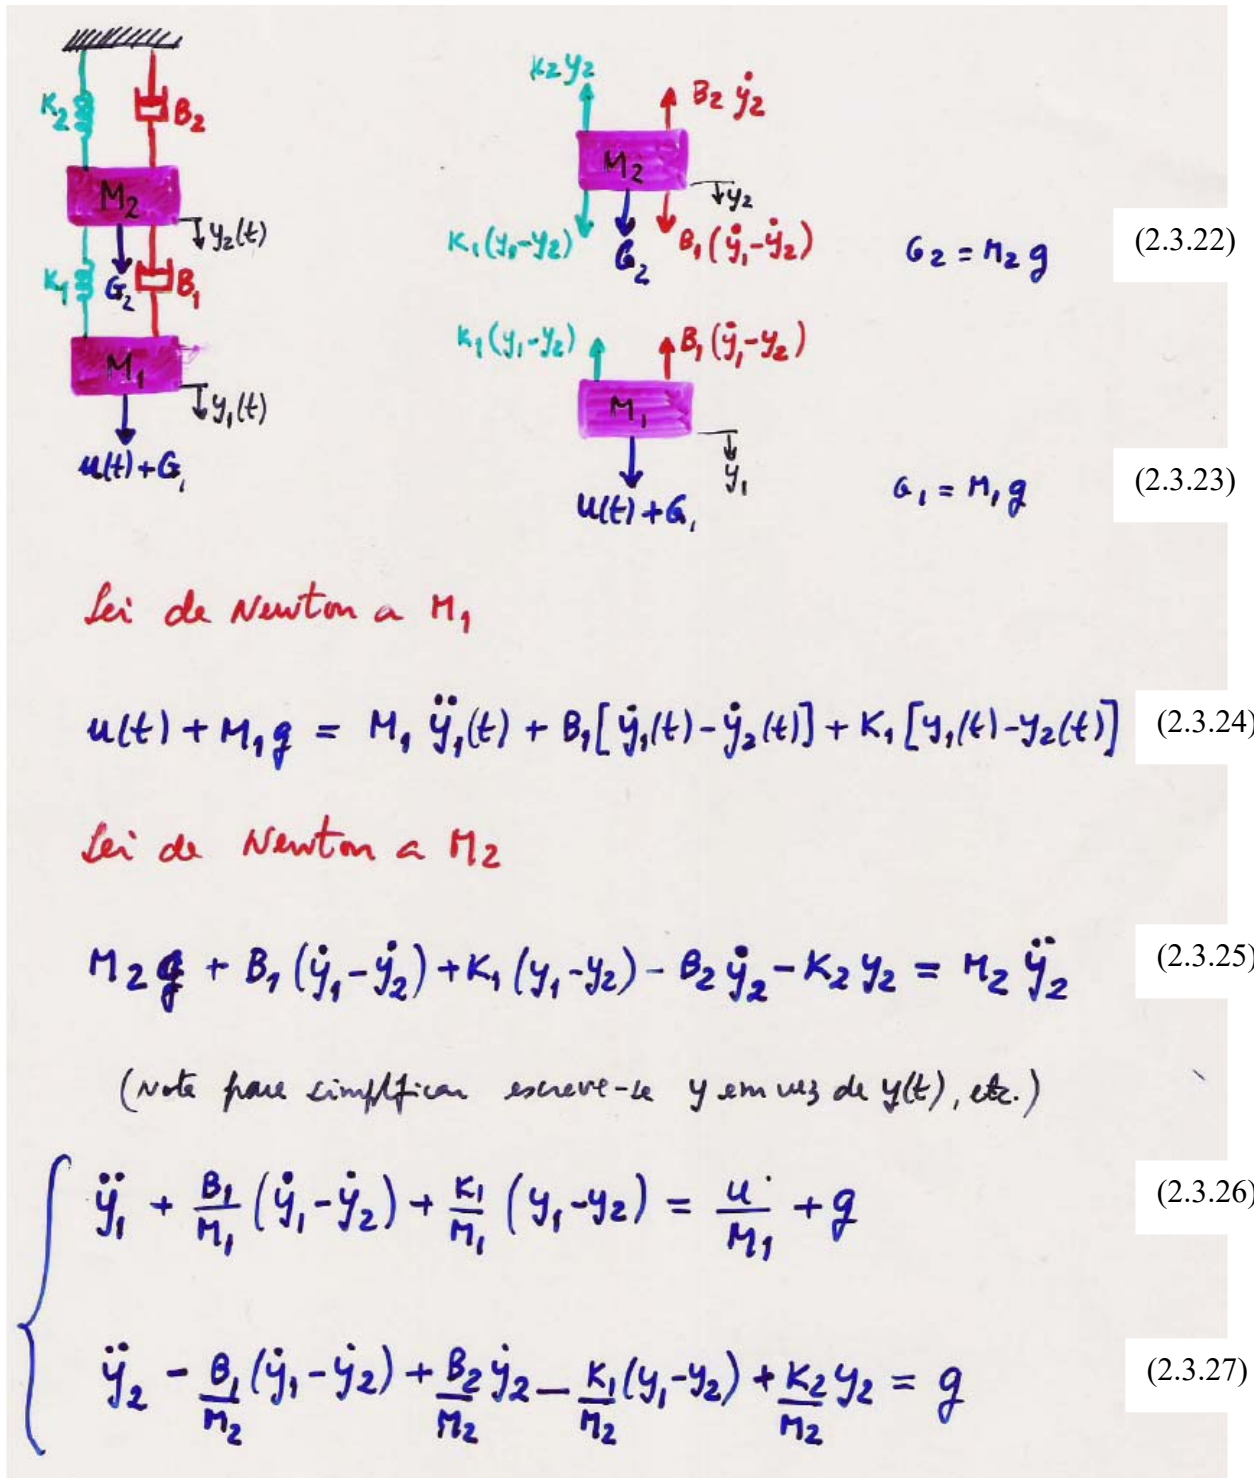 K2 B2
M2
y2(t)
K1 G2 B1
M1
y1(t)
u(t)+G1
K2y2 B2ẏ2
M2
y2
K1(y1-y2) G2 B1(ẏ1-ẏ2) G2 = M2 g (2.3.22)
K1(y1-y2) B1(ẏ1-y2)
M1
y1
u(t)+G1 G1 = M1 g (2.3.23)
Lei de Newton a M1
u(t) + M1g = M1 ÿ1(t) + B1[ẏ1(t)-ẏ2(t)] + K1[y1(t)-y2(t)] (2.3.24)
Lei de Newton a M2
M2 g + B1(ẏ1-ẏ2) + K1(y1-y2) - B2ẏ2 - K2y2 = M2 ÿ2 (2.3.25)
(Note para simplificar escreve-se y em vez de y(t), etc.)
ÿ1 + B1/M1 (ẏ1-ẏ2) + K1/M1 (y1-y2) = u/M1 + g (2.3.26)
ÿ2 - B1/M2 (ẏ1-ẏ2) + B2/M2 ẏ2 - K1/M2 (y1-y2) + K2/M2 y2 = g (2.3.27)